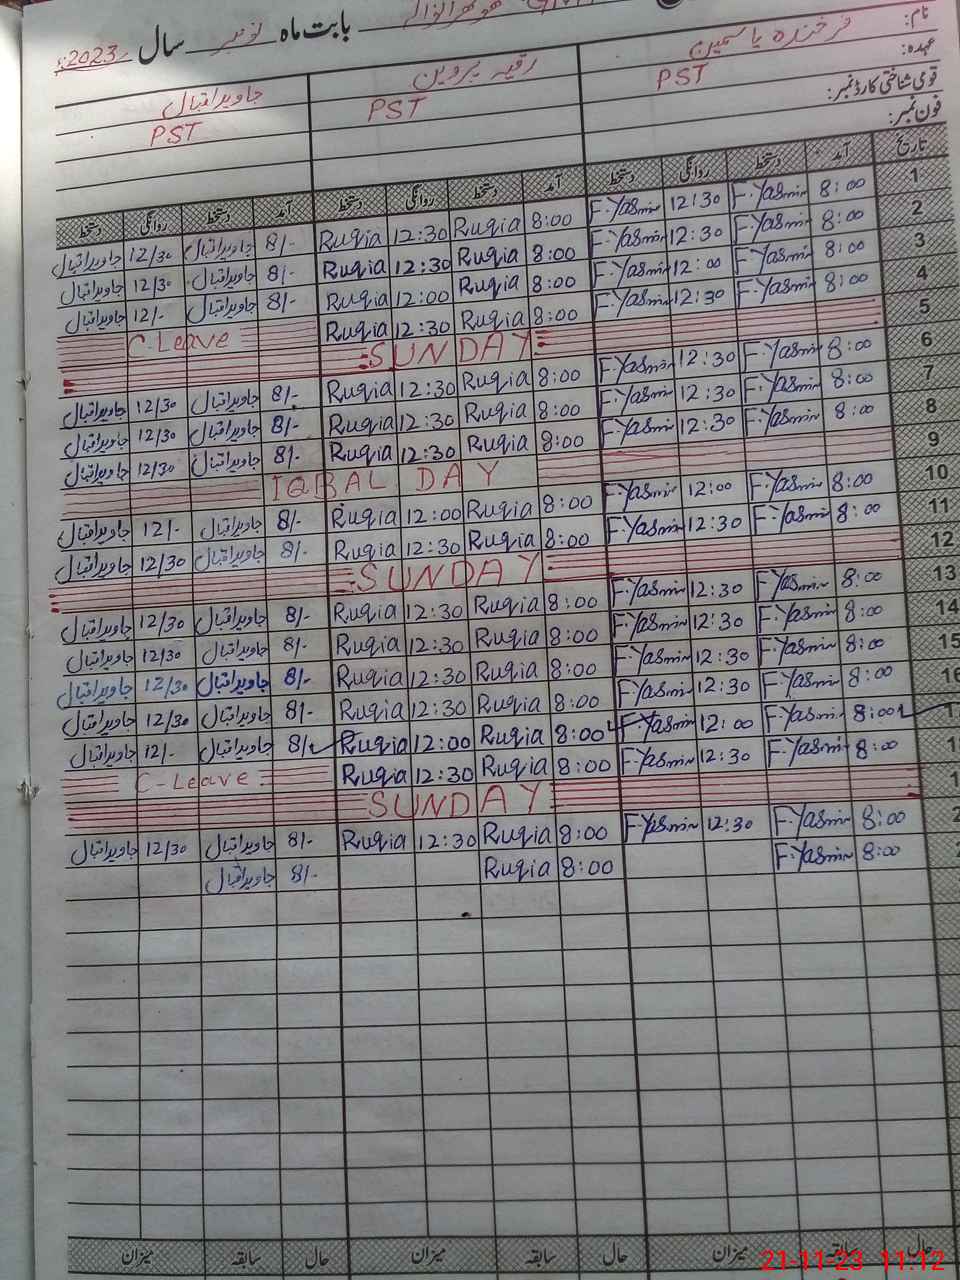 بابت ماہ نومبر سال 2023ء
نام: فرخندہ یاسمین رقیہ پروین جاوید اقبال
عہدہ: PST PST PST
قومی شناختی کارڈ نمبر:
فون نمبر:
تاریخ آمد دستخط روانگی دستخط آمد دستخط روانگی دستخط آمد دستخط روانگی دستخط
1 8:00 F.Yasmin 12:30 F.Yasmin 8:00 Ruqia 12:30 Ruqia 8/- جاوید اقبال 12/30 جاوید اقبال
2 8:00 F.Yasmin 12:30 F.Yasmin 8:00 Ruqia 12:30 Ruqia 8/- جاوید اقبال 12/30 جاوید اقبال
3 8:00 F.Yasmin 12:00 F.Yasmin 8:00 Ruqia 12:00 Ruqia 8/- جاوید اقبال 12/- جاوید اقبال
4 8:00 F.Yasmin 12:30 F.Yasmin 8:00 Ruqia 12:30 Ruqia C-Leave
5 SUNDAY
6 8:00 F.Yasmin 12:30 F.Yasmin 8:00 Ruqia 12:30 Ruqia 8/- جاوید اقبال 12/30 جاوید اقبال
7 8:00 F.Yasmin 12:30 F.Yasmin 8:00 Ruqia 12:30 Ruqia 8/- جاوید اقبال 12/30 جاوید اقبال
8 8:00 F.Yasmin 12:30 F.Yasmin 8:00 Ruqia 12:30 Ruqia 8/- جاوید اقبال 12/30 جاوید اقبال
9 IQBAL DAY
10 8:00 F.Yasmin 12:00 F.Yasmin 8:00 Ruqia 12:00 Ruqia 8/- جاوید اقبال 12/- جاوید اقبال
11 8:00 F.Yasmin 12:30 F.Yasmin 8:00 Ruqia 12:30 Ruqia 8/- جاوید اقبال 12/30 جاوید اقبال
12 SUNDAY
13 8:00 F.Yasmin 12:30 F.Yasmin 8:00 Ruqia 12:30 Ruqia 8/- جاوید اقبال 12/30 جاوید اقبال
14 8:00 F.Yasmin 12:30 F.Yasmin 8:00 Ruqia 12:30 Ruqia 8/- جاوید اقبال 12/30 جاوید اقبال
15 8:00 F.Yasmin 12:30 F.Yasmin 8:00 Ruqia 12:30 Ruqia 8/- جاوید اقبال 12/30 جاوید اقبال
16 8:00 F.Yasmin 12:30 F.Yasmin 8:00 Ruqia 12:30 Ruqia 8/- جاوید اقبال 12/30 جاوید اقبال
1 8:00 F.Yasmin 12:00 F.Yasmin 8:00 Ruqia 12:00 Ruqia 8/- جاوید اقبال 12/- جاوید اقبال
1 8:00 F.Yasmin 12:30 F.Yasmin 8:00 Ruqia 12:30 Ruqia C-Leave
1 SUNDAY
2 8:00 F.Yasmin 12:30 F.Yasmin 8:00 Ruqia 12:30 Ruqia 8/- جاوید اقبال 12/30 جاوید اقبال
8:00 F.Yasmin 8:00 Ruqia 8/- جاوید اقبال
حال سابقہ میزان حال سابقہ میزان حال سابقہ میزان
21-11-23 11:12